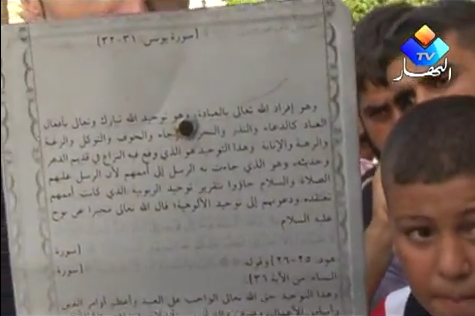 النهار
TV
[سورة يونس: ٣١-٣٢]
وهو إفراد الله تعالى بالعبادة، وهو توحيد الله تبارك وتعالى بأفعال
العباد كالدعاء والنذر والنحر والرجاء والخوف والتوكل والرغبة
والرهبة والإنابة وهذا التوحيد هو الذي وقع فيه النزاع في قديم الدهر
وحديثه، وهو الذي جاءت به الرسل إلى أممهم لأن الرسل عليهم
الصلاة والسلام جاؤوا بتقرير توحيد الربوبية الذي كانت أممهم
تعتقده ودعوتهم إلى توحيد الألوهية؛ قال الله تعالى مخبرا عن نوح
عليه السلام
[سورة
هود: ٢٥-٢٦] وقوله [سورة
النساء: من الآية ٣٦].
وهذا التوحيد حق الله تعالى الواجب على العبد وأعظم أوامر الدين